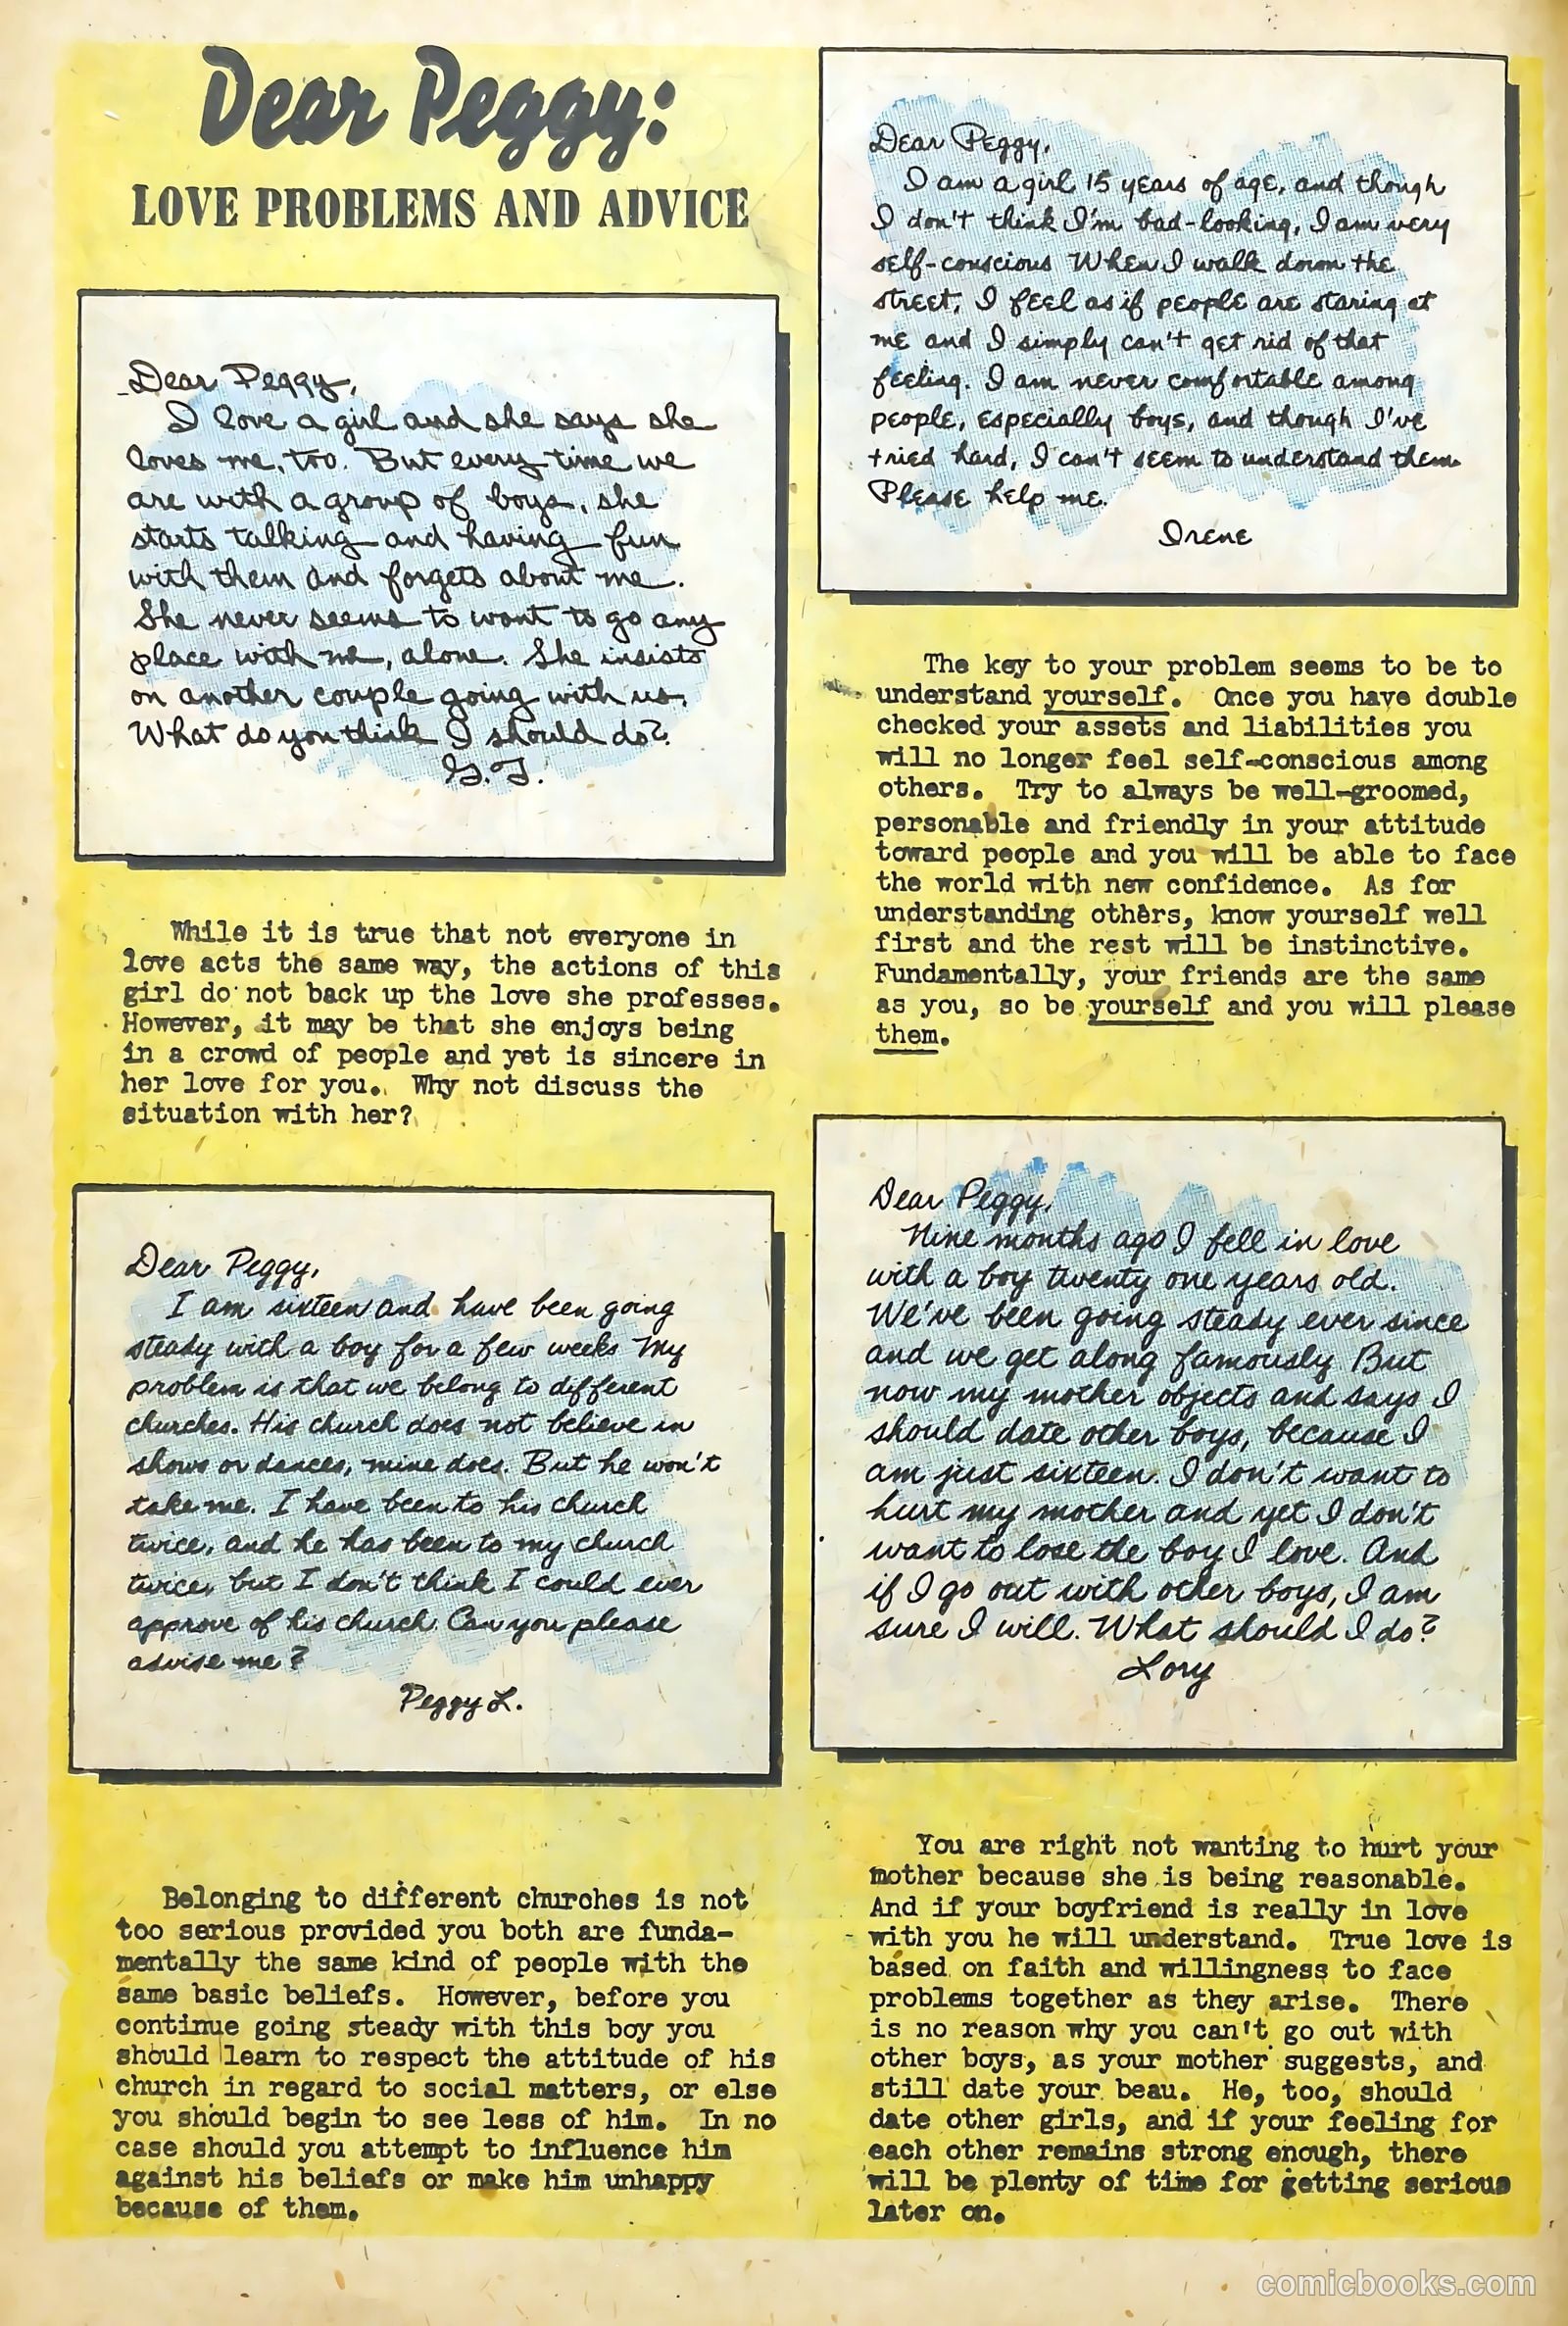 Dear Peggy:
LOVE PROBLEMS AND ADVICE
Dear Peggy,
I love a girl and she says she
loves me, too. But every time we
are with a group of boys, she
starts talking and having fun
with them and forgets about me.
She never seems to want to go any
place with me, alone. She insists
on another couple going with us.
What do you think I should do?
G.T.
While it is true that not everyone in
love acts the same way, the actions of this
girl do not back up the love she professes.
However, it may be that she enjoys being
in a crowd of people and yet is sincere in
her love for you. Why not discuss the
situation with her?
Dear Peggy,
I am sixteen and have been going
steady with a boy for a few weeks My
problem is that we belong to different
churches. His church does not believe in
shows or dances, mine does. But he won't
take me. I have been to his church
twice, and he has been to my church
twice, but I don't think I could ever
approve of his church. Can you please
advise me?
Peggy L.
Belonging to different churches is not
too serious provided you both are funda-
mentally the same kind of people with the
same basic beliefs. However, before you
continue going steady with this boy you
should learn to respect the attitude of his
church in regard to social matters, or else
you should begin to see less of him. In no
case should you attempt to influence him
against his beliefs or make him unhappy
because of them.
Dear Peggy,
I am a girl 15 years of age, and though
I don't think I'm bad-looking, I am very
self-conscious When I walk down the
street, I feel as if people are staring at
me and I simply can't get rid of that
feeling. I am never comfortable among
people, especially boys, and though I've
tried hard, I can't seem to understand them.
Please help me.
Irene
The key to your problem seems to be to
understand yourself. Once you have double
checked your assets and liabilities you
will no longer feel self-conscious among
others. Try to always be well-groomed,
personable and friendly in your attitude
toward people and you will be able to face
the world with new confidence. As for
understanding others, know yourself well
first and the rest will be instinctive.
Fundamentally, your friends are the same
as you, so be yourself and you will please
them.
Dear Peggy,
Nine months ago I fell in love
with a boy twenty one years old.
We've been going steady ever since
and we get along famously But
now my mother objects and says I
should date other boys, because I
am just sixteen. I don't want to
hurt my mother and yet I don't
want to lose the boy I love. And
if I go out with other boys, I am
sure I will. What should I do?
Lory
You are right not wanting to hurt your
mother because she is being reasonable.
And if your boyfriend is really in love
with you he will understand. True love is
based on faith and willingness to face
problems together as they arise. There
is no reason why you can't go out with
other boys, as your mother suggests, and
still date your beau. He, too, should
date other girls, and if your feeling for
each other remains strong enough, there
will be plenty of time for getting serious
later on.
comicbooks.com